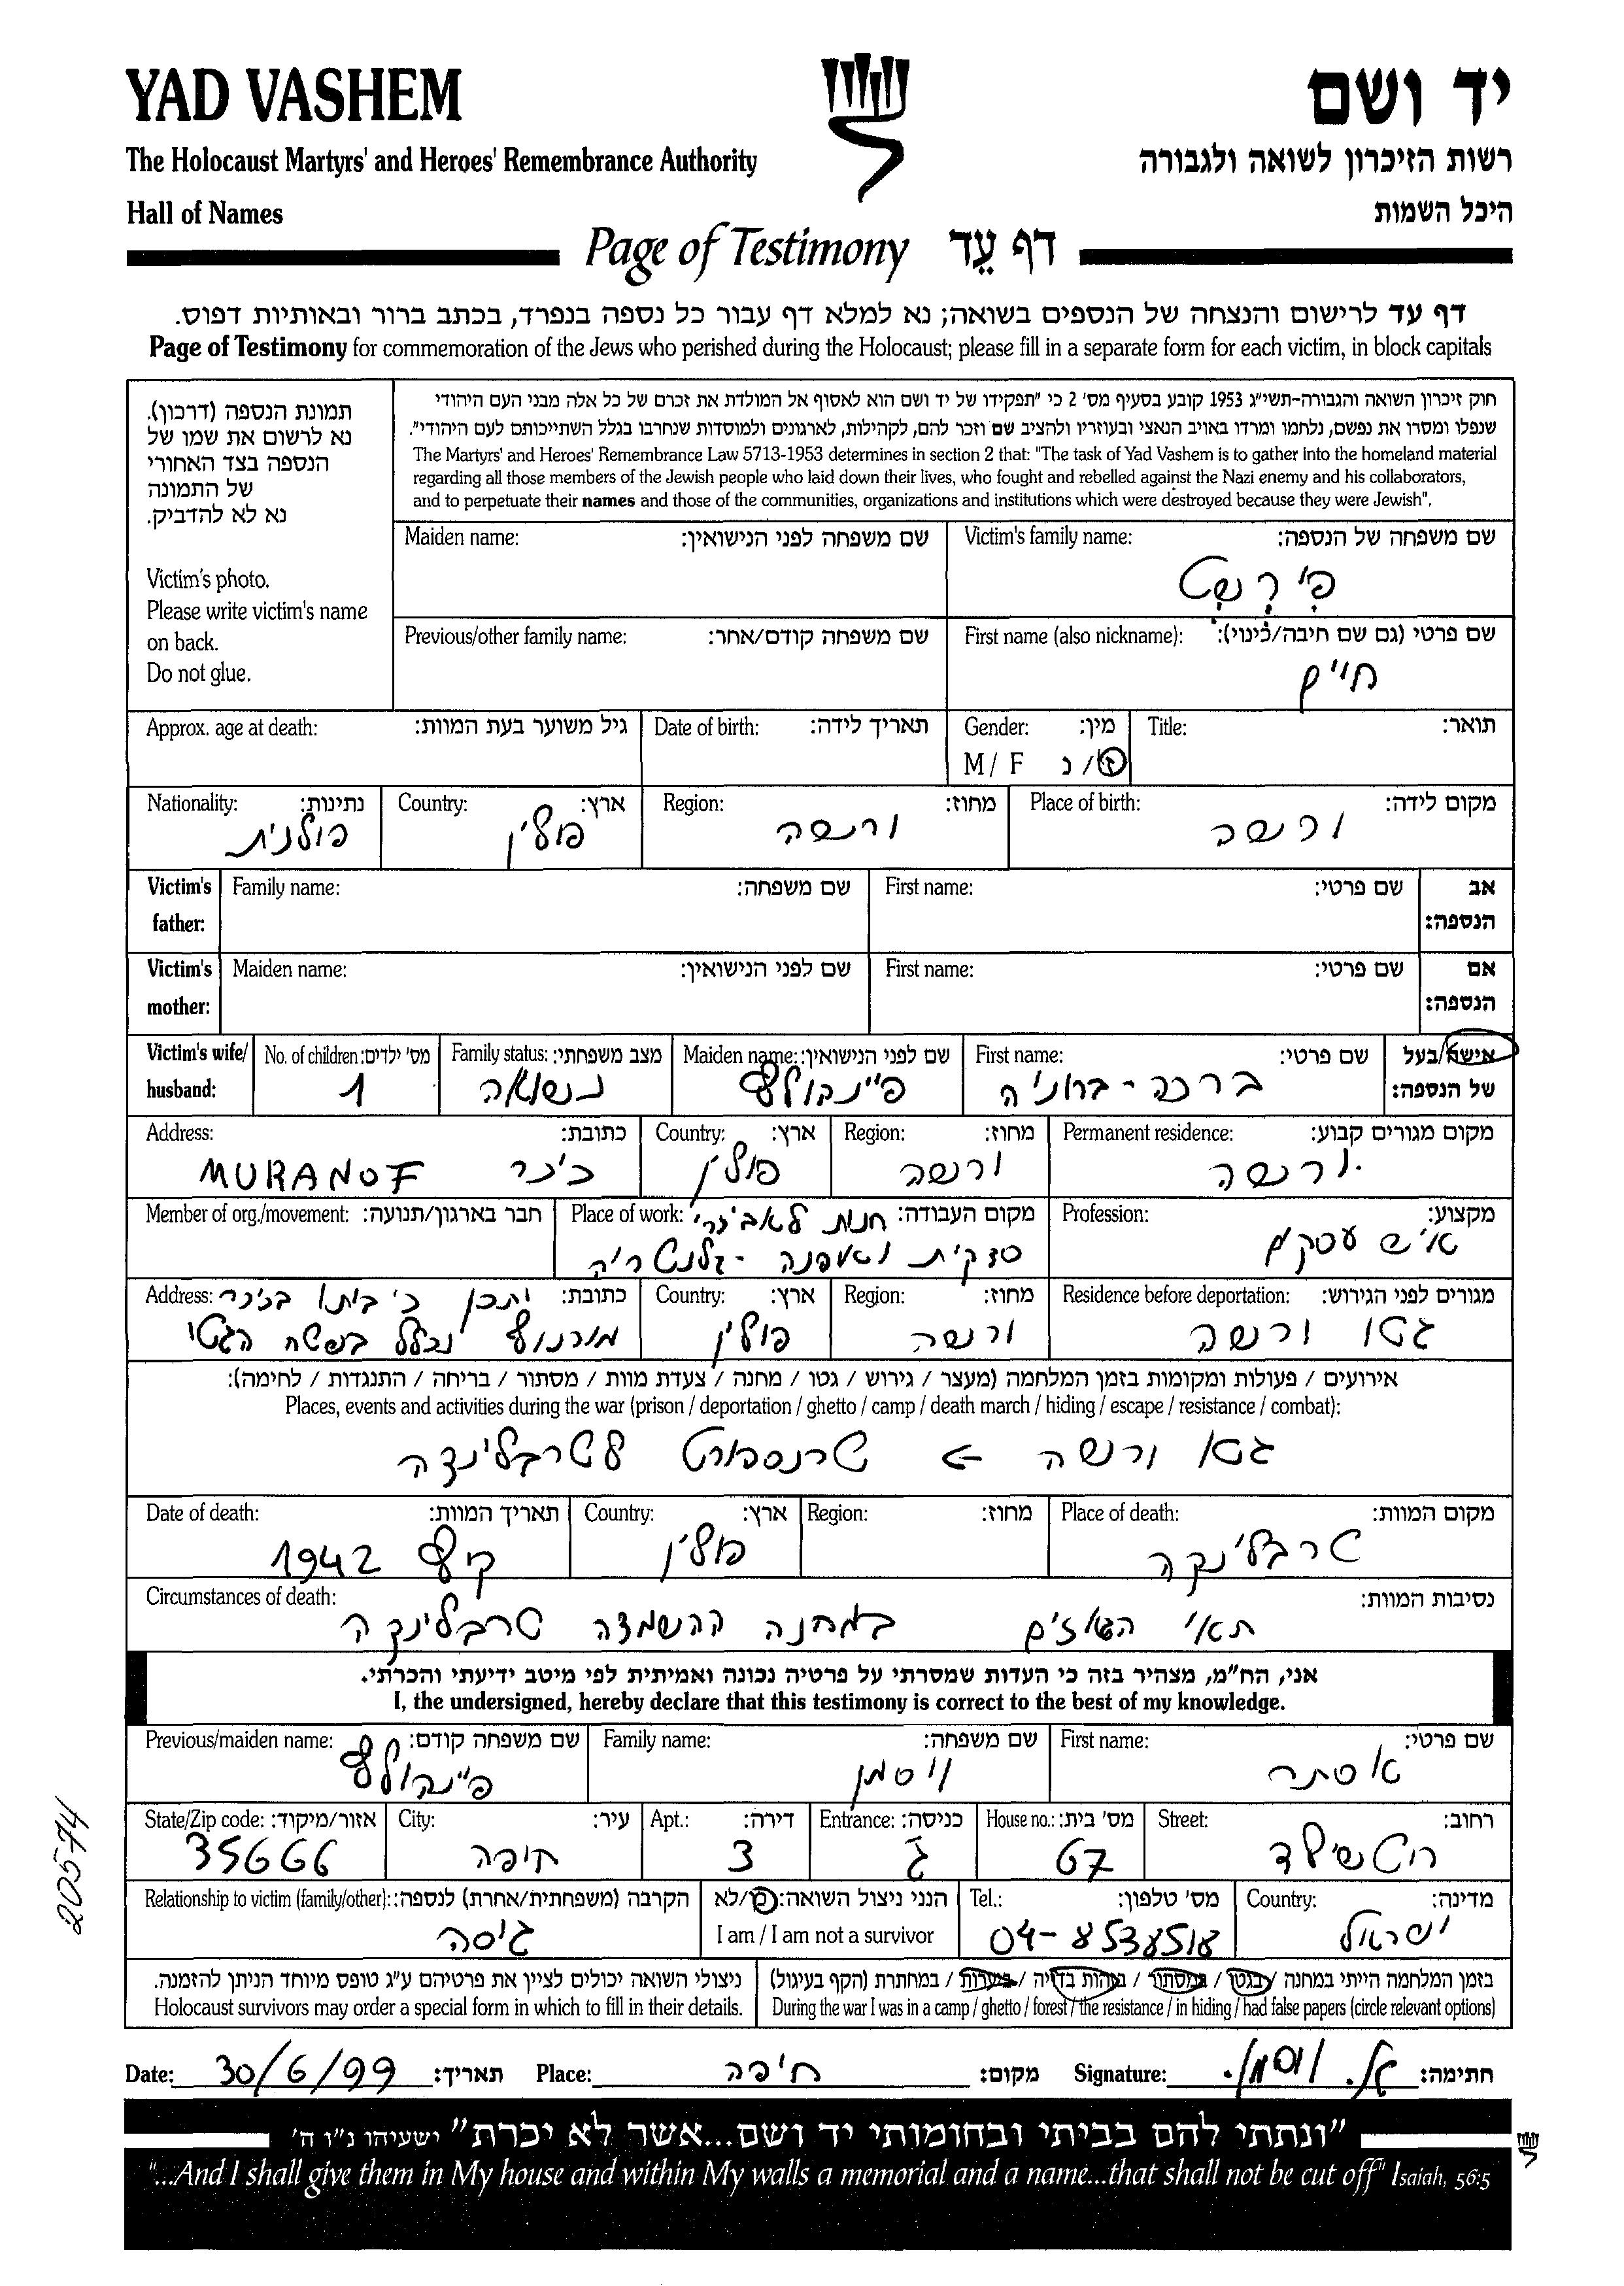 YAD VASHEM
יד ושם
The Holocaust Martyrs' and Heroes' Remembrance Authority
רשות הזיכרון לשואה ולגבורה
Hall of Names
היכל השמות
Page of Testimony דף עֵד
דף עד לרישום והנצחה של הנספים בשואה; נא למלא דף עבור כל נספה בנפרד, בכתב ברור ובאותיות דפוס.
Page of Testimony for commemoration of the Jews who perished during the Holocaust; please fill in a separate form for each victim, in block capitals
תמונת הנספה (דרכון).
נא לרשום את שמו של
הנספה בצד האחורי
של התמונה
נא לא להדביק.
Victim's photo.
Please write victim's name
on back.
Do not glue.
חוק זיכרון השואה והגבורה-תשי"ג 1953 קובע בסעיף מס' 2 כי "תפקידו של יד ושם הוא לאסוף אל המולדת את זכרם של כל אלה מבני העם היהודי
שנפלו ומסרו את נפשם, נלחמו ומרדו באויב הנאצי ובעוזריו ולהציב שם וזכר להם, לקהילות, לארגונים ולמוסדות שנחרבו בגלל השתייכותם לעם היהודי".
The Martyrs' and Heroes' Remembrance Law 5713-1953 determines in section 2 that: "The task of Yad Vashem is to gather into the homeland material
regarding all those members of the Jewish people who laid down their lives, who fought and rebelled against the Nazi enemy and his collaborators,
and to perpetuate their names and those of the communities, organizations and institutions which were destroyed because they were Jewish".
Victim's family name: שם משפחה של הנספה:
פירשט
Maiden name: שם משפחה לפני הנישואין:
First name (also nickname): שם פרטי (גם שם חיבה/כינוי):
חיים
Previous/other family name: שם משפחה קודם/אחר:
Title: תואר:
Gender: מין:
M / F ז/נ
Date of birth: תאריך לידה:
Approx. age at death: גיל משוער בעת המוות:
Place of birth: מקום לידה:
ורשה
Region: מחוז:
ורשה
Country: ארץ:
פולין
Nationality: נתינות:
פולנית
Victim's father: אב הנספה:
First name: שם פרטי:
Family name: שם משפחה:
Victim's mother: אם הנספה:
First name: שם פרטי:
Maiden name: שם לפני הנישואין:
Victim's wife/ husband: אישה/בעל של הנספה:
First name: שם פרטי:
ברכה - ברוניה
Maiden name: שם לפני הנישואין:
פיינהולץ
Family status: מצב משפחתי:
נשואה
No. of children: מס' ילדים:
1
Permanent residence: מקום מגורים קבוע:
ורשה
Region: מחוז:
ורשה
Country: ארץ:
פולין
Address: כתובת:
כיכר MURANOF
Profession: מקצוע:
איש עסקים
Place of work: מקום העבודה:
חנות לאביזרי
סדקית ואופנה - גלנטריה
Member of org./movement: חבר בארגון/תנועה:
Residence before deportation: מגורים לפני הגירוש:
גטו ורשה
Region: מחוז:
ורשה
Country: ארץ:
פולין
Address: כתובת:
יתכן כי ביתו בכיכר
מורנוף נכלל בשטח הגטו
אירועים / פעולות ומקומות בזמן המלחמה (מעצר / גירוש / גטו / מחנה / צעדת מוות / מסתור / בריחה / התנגדות / לחימה):
Places, events and activities during the war (prison / deportation / ghetto / camp / death march / hiding / escape / resistance / combat):
גטו ורשה → טרנספורט לטרבלינקה
Place of death: מקום המוות:
טרבלינקה
Region: מחוז:
Country: ארץ:
פולין
Date of death: תאריך המוות:
קיץ 1942
Circumstances of death: נסיבות המוות:
תאי הגאזים במחנה ההשמדה טרבלינקה
אני, הח"מ, מצהיר בזה כי העדות שמסרתי על פרטיה נכונה ואמיתית לפי מיטב ידיעתי והכרתי.
I, the undersigned, hereby declare that this testimony is correct to the best of my knowledge.
First name: שם פרטי:
אסתר
Family name: שם משפחה:
ויסמן
Previous/maiden name: שם משפחה קודם:
פיינהולץ
Street: רחוב:
רוטשילד
House no.: מס' בית:
67
Entrance: כניסה:
ג
Apt.: דירה:
3
City: עיר:
חיפה
State/Zip code: אזור/מיקוד:
35666
Country: מדינה:
ישראל
Tel.: מס' טלפון:
04-8537518
הנני ניצול השואה: כן/לא
I am / I am not a survivor
Relationship to victim (family/other): הקרבה (משפחתית/אחרת) לנספה:
גיסה
בזמן המלחמה הייתי במחנה / בגטו / במסתור / בזהות בדויה / ביערות / במחתרת (הקף בעיגול)
During the war I was in a camp / ghetto / forest / the resistance / in hiding / had false papers (circle relevant options)
ניצולי השואה יכולים לציין את פרטיהם ע"ג טופס מיוחד הניתן להזמנה.
Holocaust survivors may order a special form in which to fill in their details.
Date: 30/6/99 תאריך: Place: חיפה מקום: Signature: א. ויסמן חתימה:
"ונתתי להם בביתי ובחומותי יד ושם...אשר לא יכרת" ישעיהו נ"ו ה'
"...And I shall give them in My house and within My walls a memorial and a name...that shall not be cut off" Isaiah, 56:5
20574